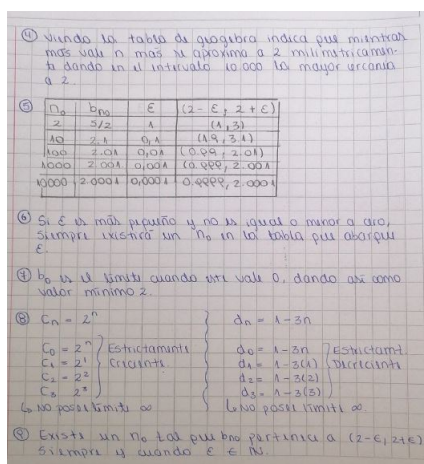 ④ Viendo la tabla de geogebra indica que mientras
más vale n más se aproxima a 2 milimetricamen-
te dando en el intervalo 10.000 la mayor cercania
a 2.
⑤ n₀ bn₀ ε (2-ε, 2+ε)
2 5/2 1 (1,3)
10 2.1 0,1 (1.9, 3.1)
100 2.01 0,01 (0.99, 2.01)
1000 2.001 0,001 (0.999, 2.001)
10000 2.0001 0,0001 0.9999, 2.0001
⑥ Si ε es más pequeño y no es igual o menor a cero,
siempre existirá un n₀ en la tabla que abarque
ε.
⑦ b₀ es el limite cuando este vale 0, dando asi como
valor minimo 2.
⑧ Cn = 2ⁿ dn = 1-3n
C₀ = 2ⁿ d₀ = 1-3n
C₁ = 2¹ Estrictamente d₁ = 1-3(1) Estrictamt.
C₂ = 2² Creciente. d₂ = 1-3(2) Decreciente
C₃ 2³ d₃ = 1-3(3)
↳ No posee limite ∞ ↳ No posee limite ∞
⑨ Existe un n₀ tal que bn₀ pertenece a (2-ε, 2+ε)
siempre y cuando ε ∈ IN.